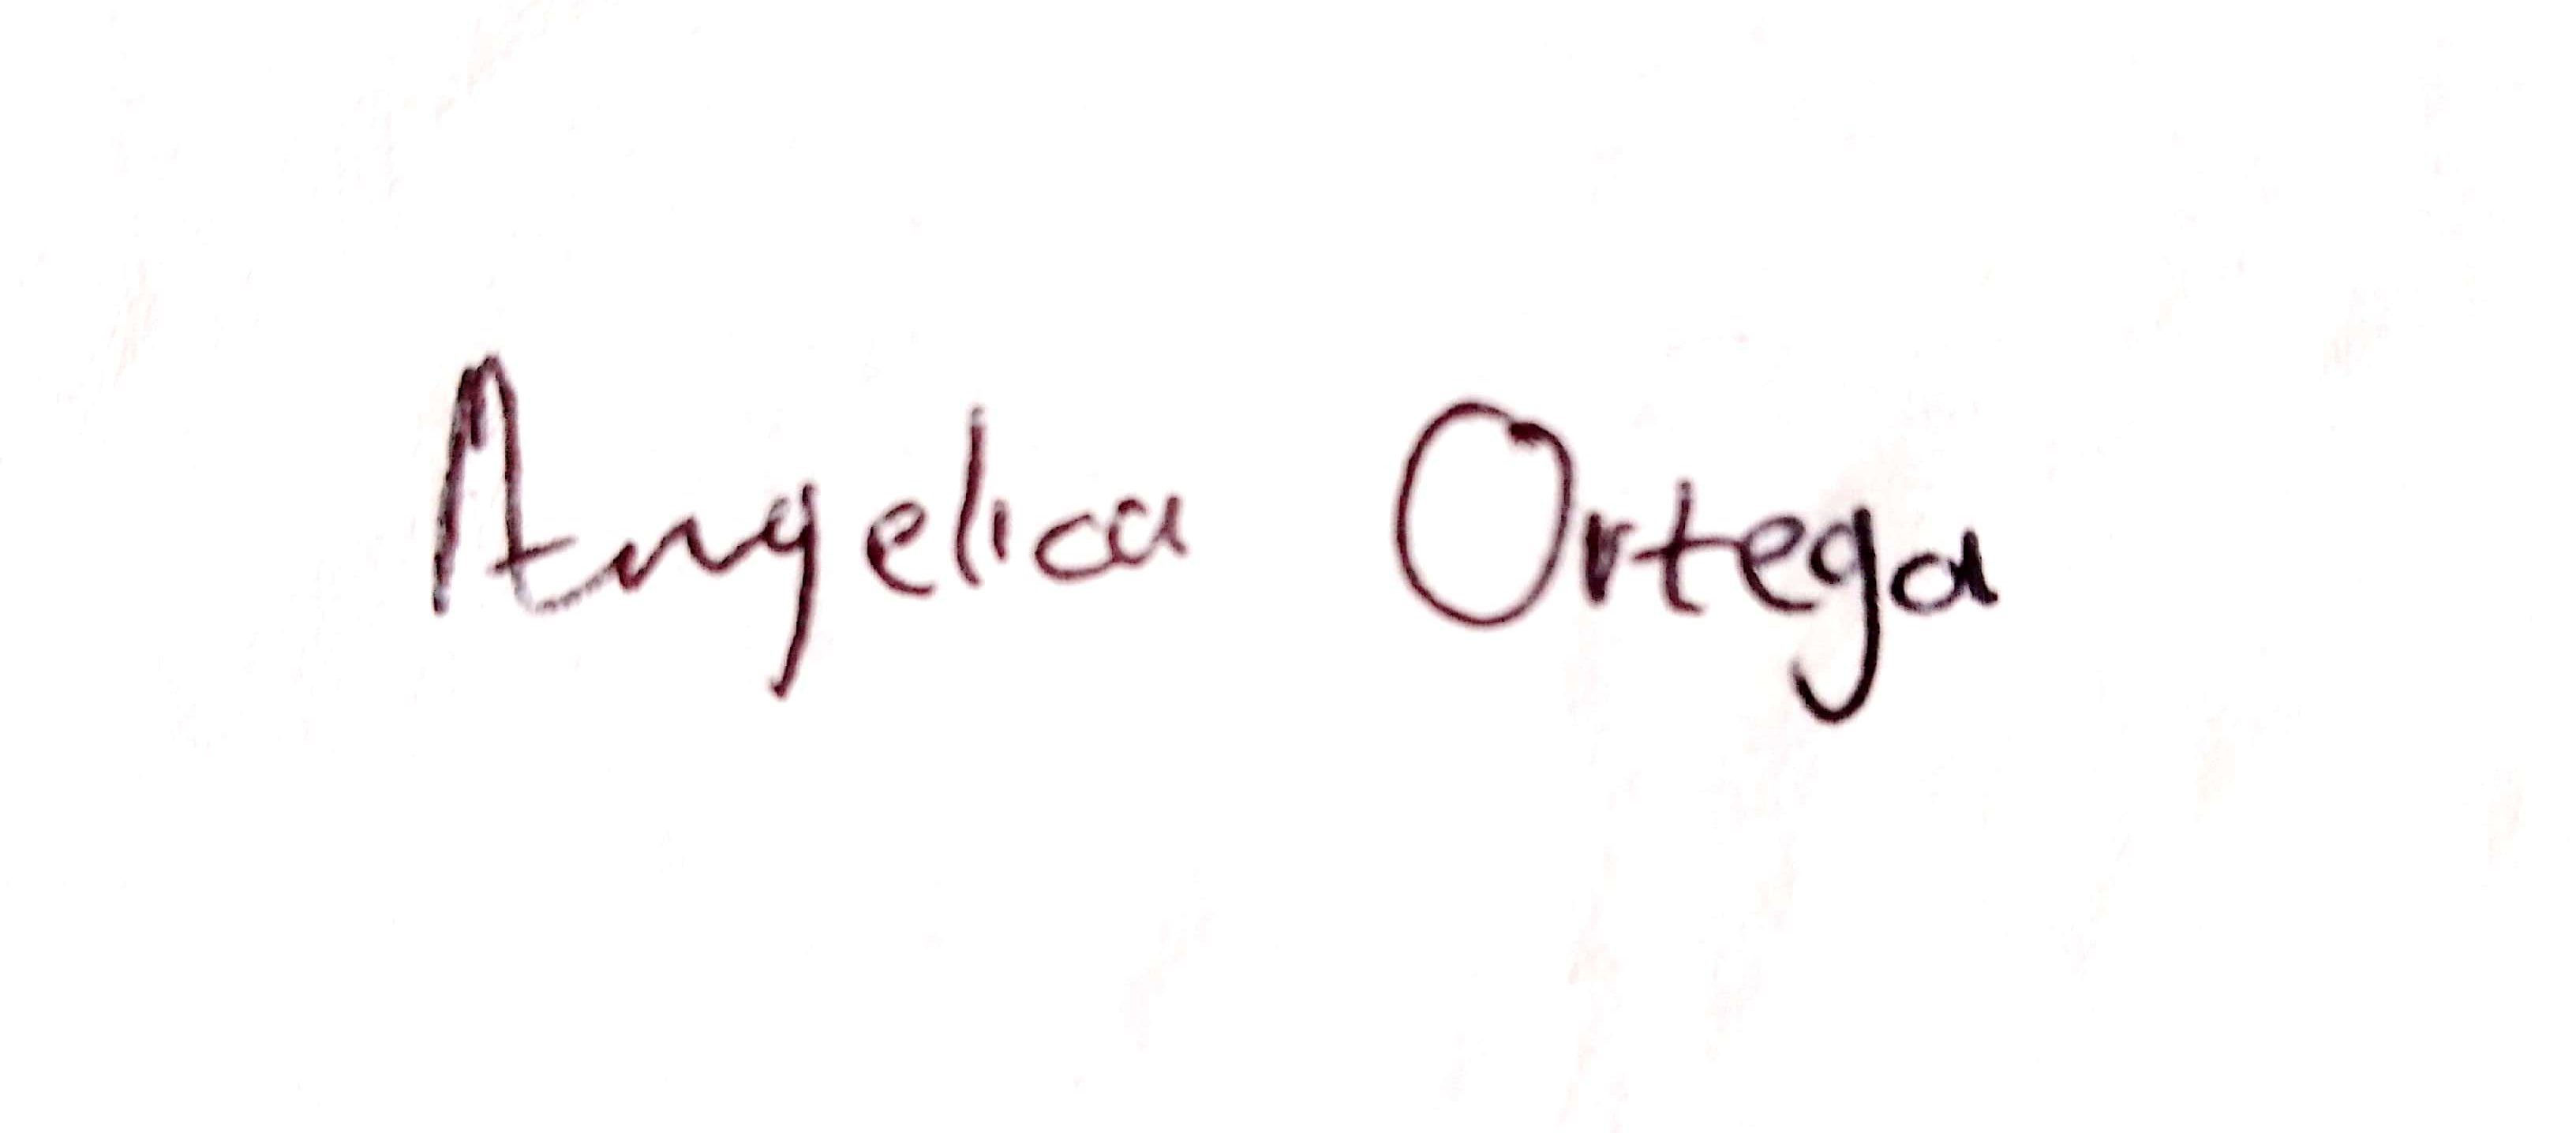 Angelica Ortega